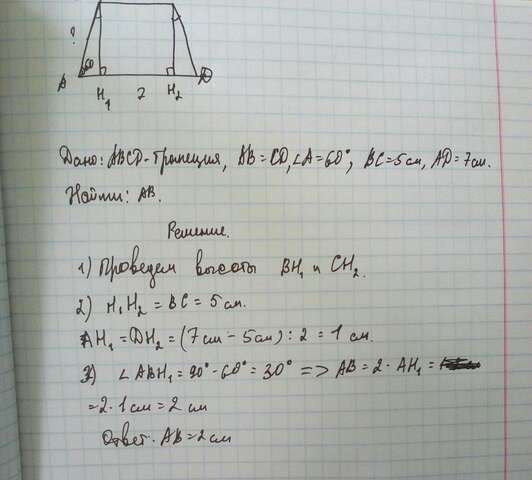 ?
60
A D
H₁ 7 H₂
Дано: ABCD-трапеция, AB=CD, ∠A=60°, BC=5см, AD=7см.
Найти: AB.
Решение.
1) Проведем высоты BH₁ и CH₂.
2) H₁H₂ = BC = 5 см.
AH₁ = DH₂ = (7см - 5см) : 2 = 1 см.
3) ∠ABH₁ = 90° - 60° = 30° => AB = 2 · AH₁ =
= 2 · 1 см = 2 см
Ответ. AB = 2 см